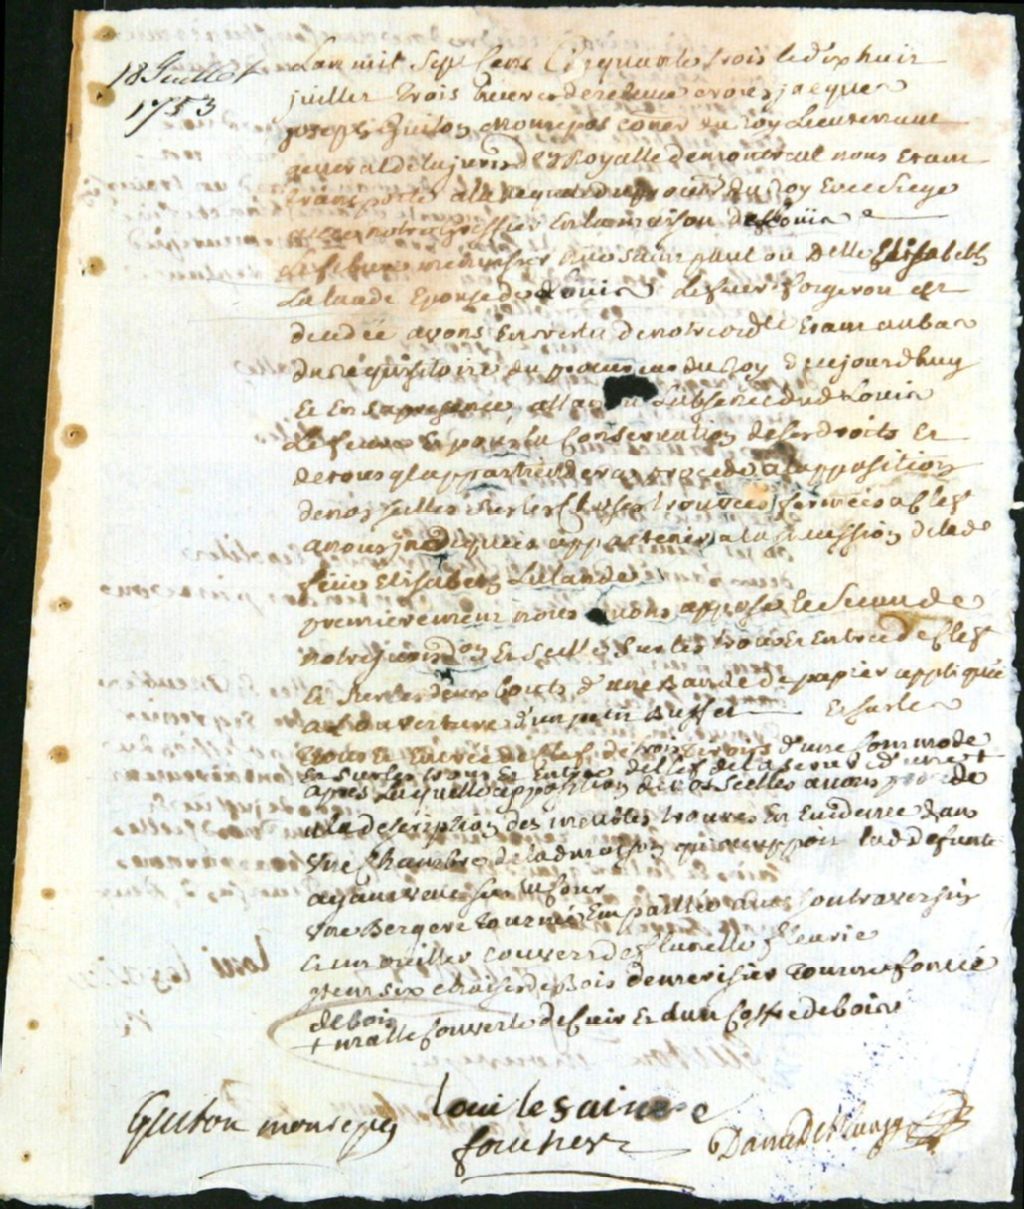 18 Juillet
1753
Lan mil sept Cens Cinquante trois le dix huit
juillet trois heures de relevée nous jacques
joseph Guiton Monrepos Coner du Roy Lieutenant
general de la jurisdon Royalle de montreal nous etant
transporté a la requete du procur du Roy en ce siege
avec notre greffier en la maison de Louis
Lefebvre menuisier Rue saint paul ou Delle Elisabeth
Lalande Epouse de Louis forgeron est
decedée avons en vertu de notre orde etant au bas
du requisitoire du procureur du Roy d'aujourdhuy
Et En sa presence, attandu L'absence dud Louis
Et pour la Conservation de ses droits Et
de tous ql appartiendra procedé a l'apposition
de nos scellés sur les trouvées fermées a clef
a nous indiquées appartenir a la succession de lade
feüe Elisabeth Lalande
premierement nous avons apposé le Sceau de
notre jurisdon En scellé sur les trou Et Entrée de clef
Et sur les deux bouts d'une Bande de papier appliquée
a l'ouverture d'un petit Buffet Et sur les
trous Et Entrée de clef de trois tiroirs d'une Commode
Et sur les trous Et Entrée de clef de la serure d'une +
apres Laquelle apposition de nos scellés avons procedé
a la description des meubles trouvés En Evidence dans
Une Chambre de lad maison qu'occuppoit lad defunte
ayant veüe sur la Cour
Une Bergere tournée Empaillée avec son traversin
Et un oreiller couvert de flanelle fleurie
Item six chaises de Bois de merisier tourné foncée
de bois
+ malle Couverte de Cuir Et d'un Coffre de bois
Guiton monrepos Loui le saint
foucher Danré de Blanzy